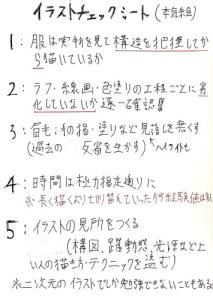 イラストチェックシート(本気絵)
1:服は実物を見て構造を把握してか
ら描いているか
2:ラフ・線画・色塗りの工程ごとに劣
化していないか逐一確認!!
3:眉毛・初の描・塗りなど見落し無くす
(過去の 反省を生かす) ハイライトも
4:時間は極力指定通りに
※長く描くより切り替えていた方が
5:イラストの見所をつくる
(構図、躍動感、光沢など上
い人の描き方・テクニックを盗む)
※二次元のイラストでしか勉強できないこともある